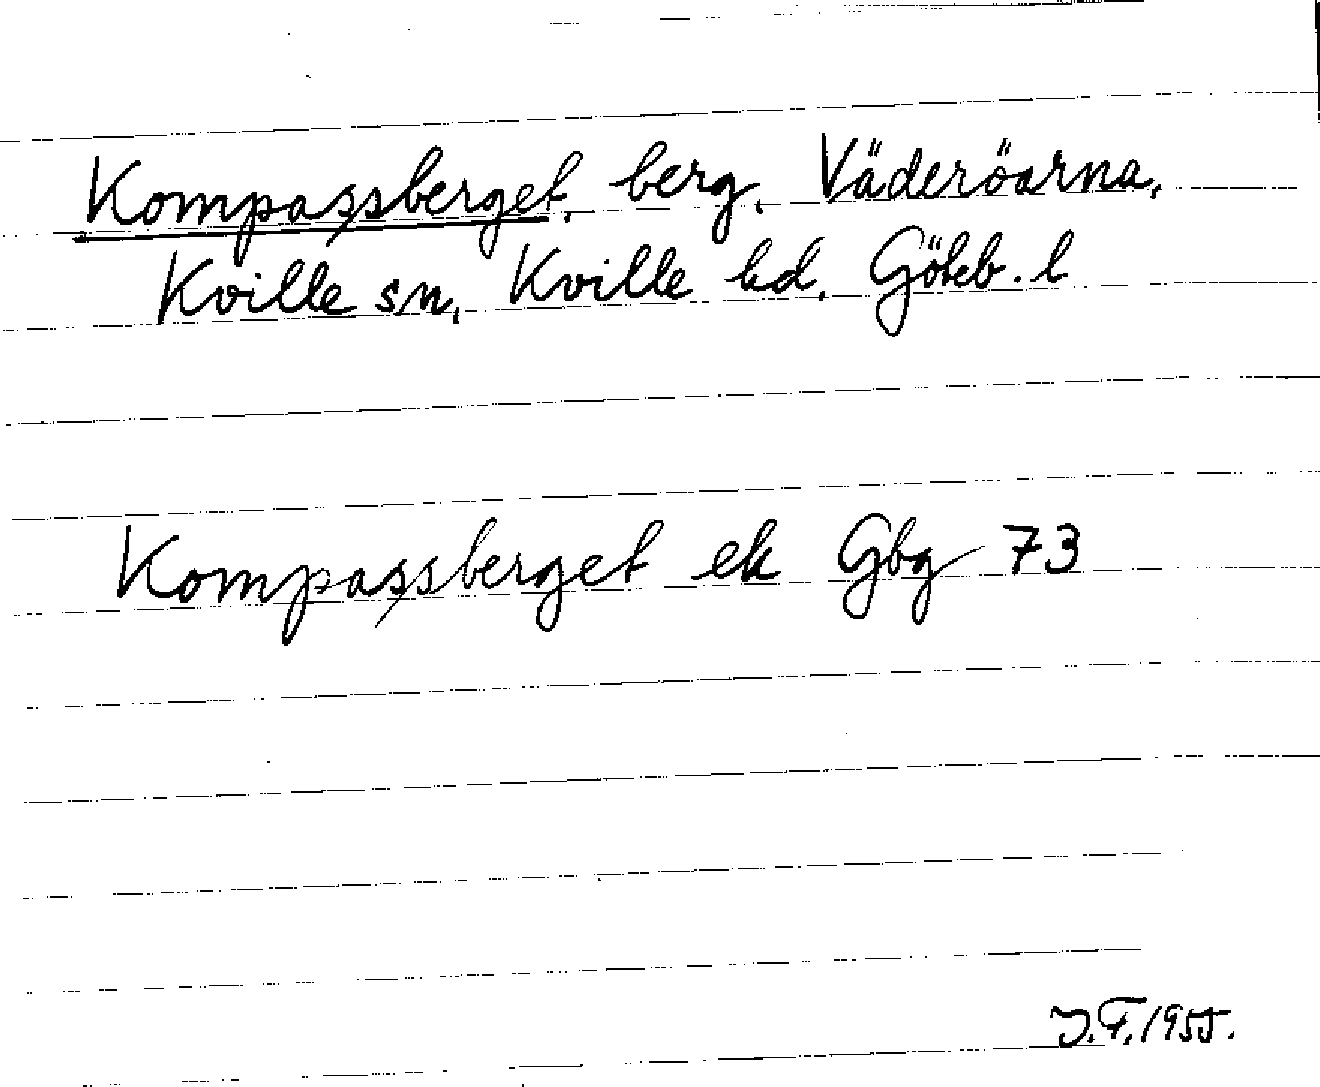 Kompassberget, berg, Väderöarna,
Kville sn, Kville hd, Göteb. l
Kompassberget ek Gbg 73
J.F. 1955.